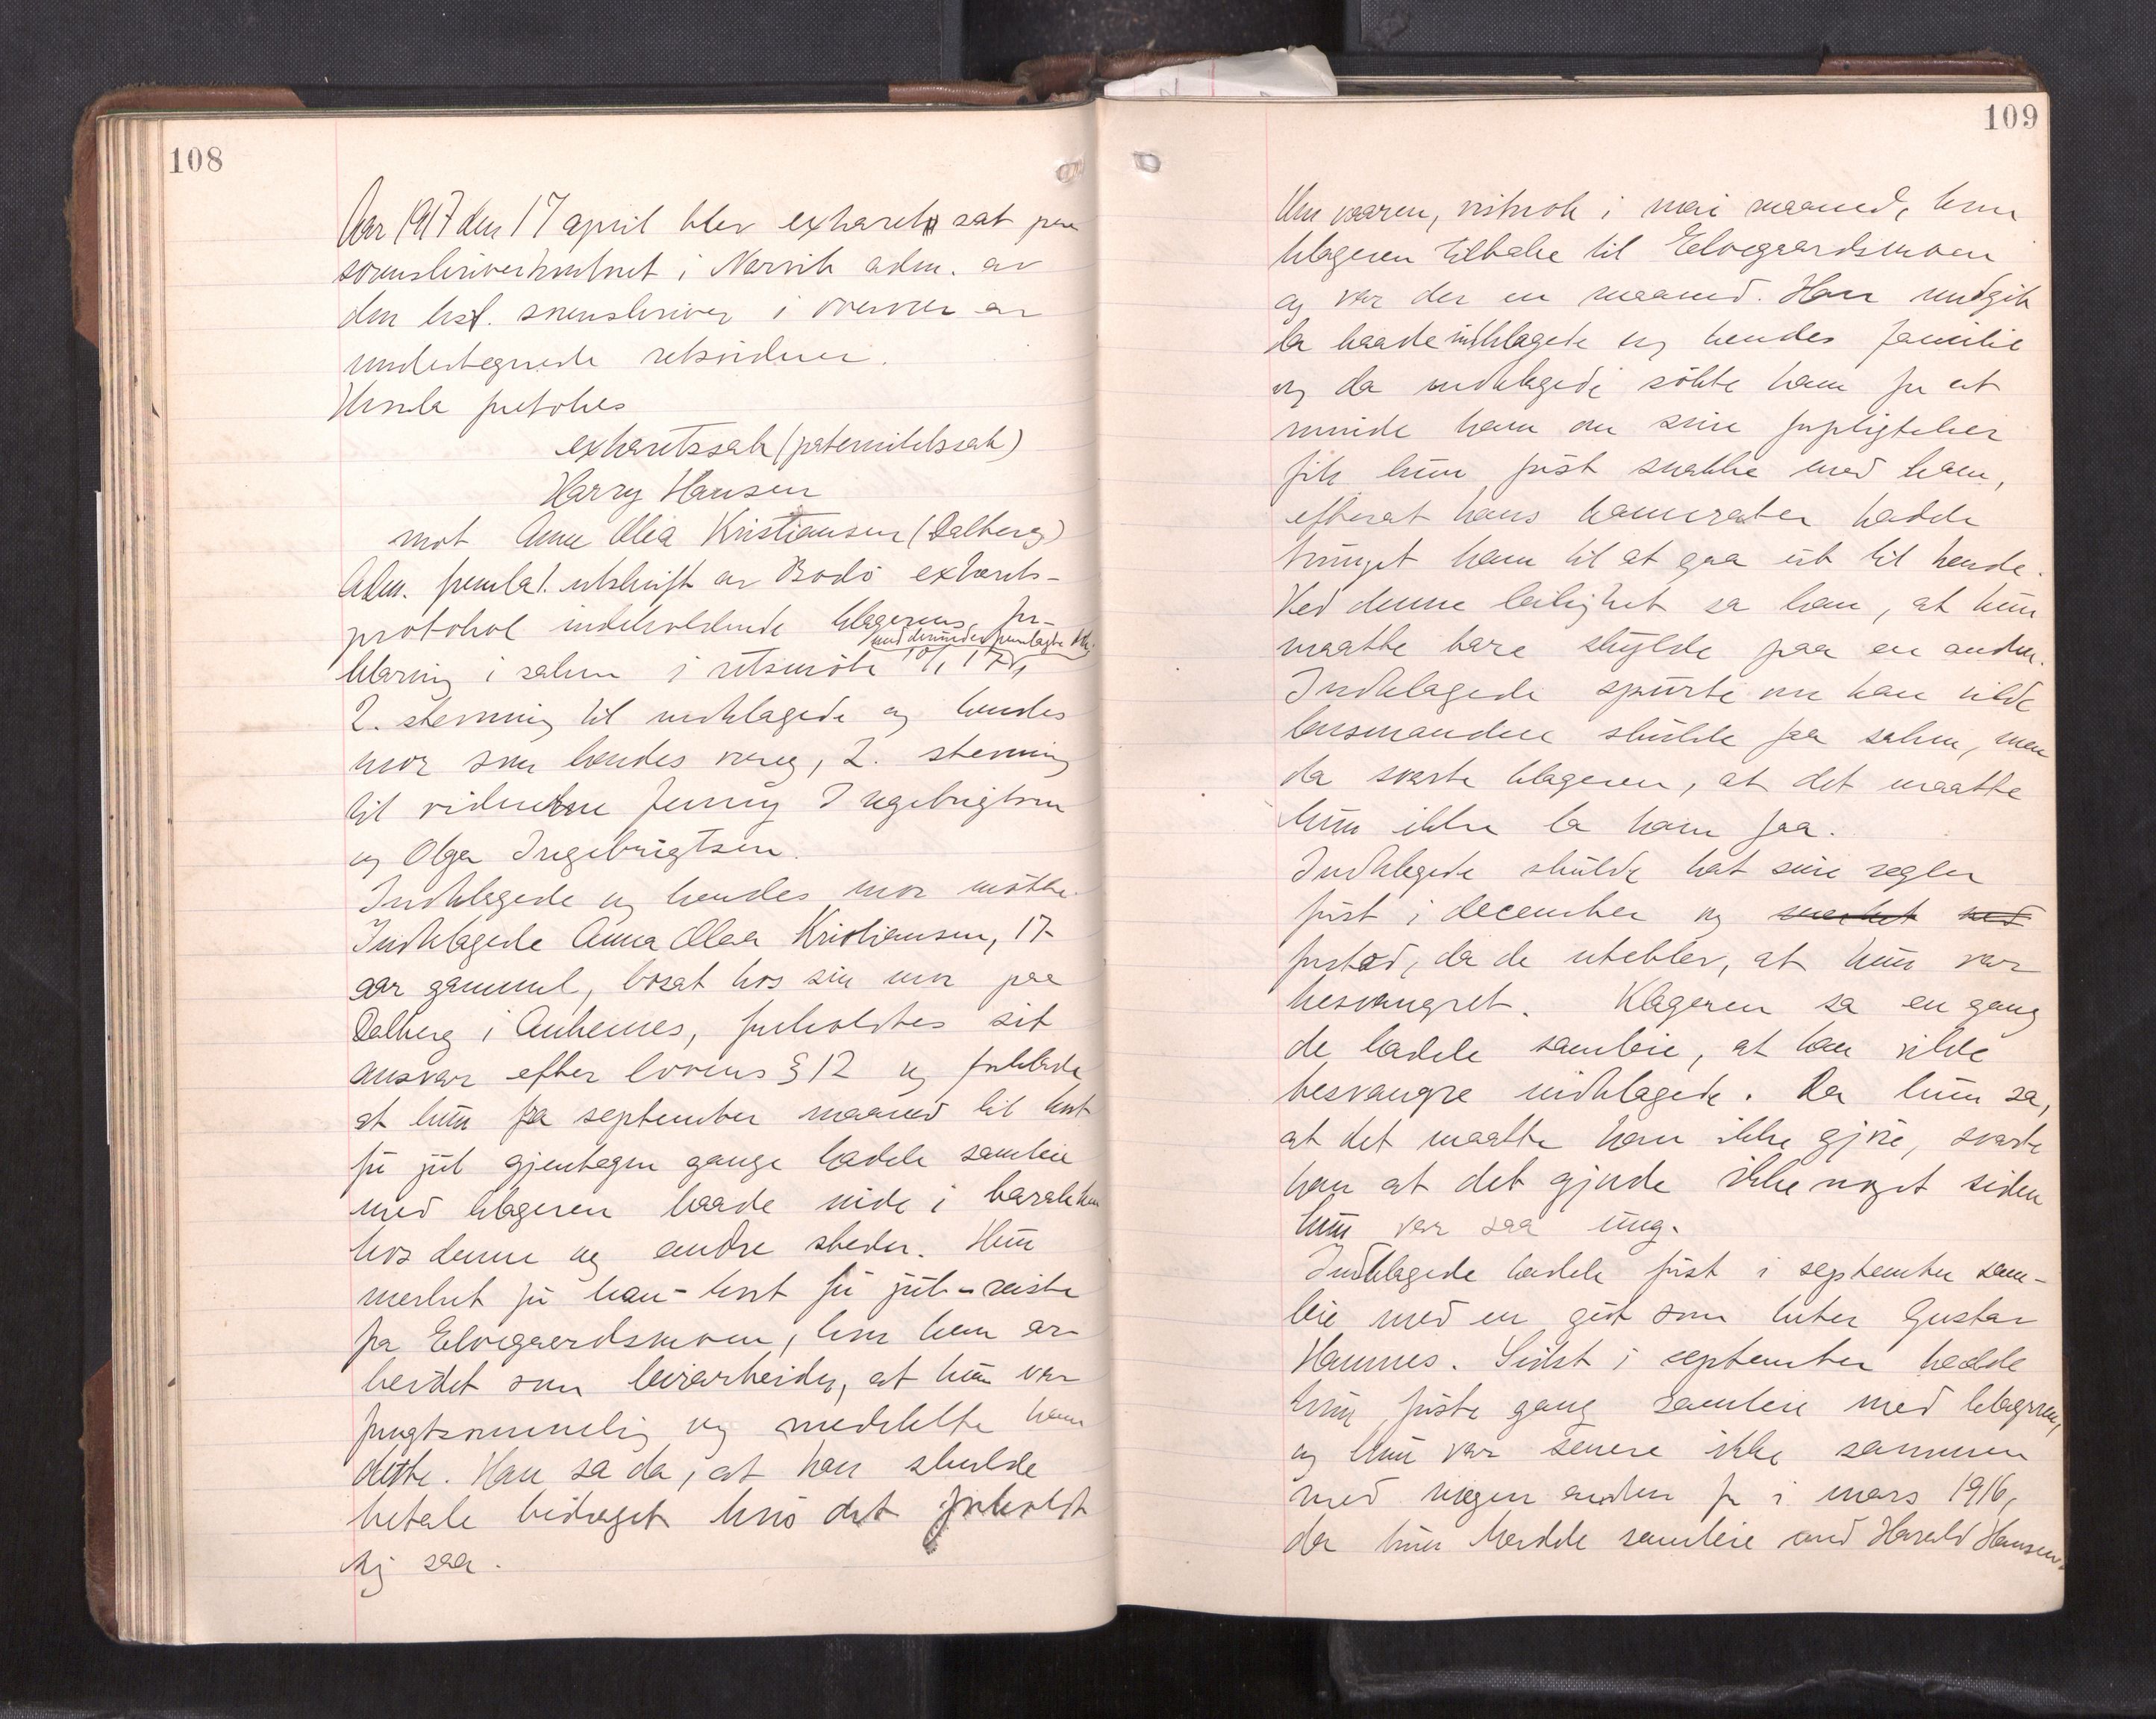 108
Aar 1917 den 17 april blev extraret sat paa
sorenskriverkontoret i Narvik adm. av
den kst. sorenskriver i overvær av
undertegnede retsvidner.
Hvorda foretokes
extraretssak (paternitetssak)
Harry Hansen
mot Anna Olea Kristiansen (Dalberg)
Adm. fremla 1. utskrift av Bodö extrarets-
protokol indeholdende klagerens for-
med derunder fremlagte dok.
klaring i saken i retsmöte 10/1 17,
2. stevning til indklagede og hendes
mor som hendes verge, 2. stevning
til vidnerne Jenny Ingebrigtsen
og Olga Ingebrigtsen.
Indklagede og hendes mor mötte.
Indklagede Anna Olea Kristiansen, 17
aar gammel, bosat hos sin mor paa
Dalberg i Ankenes, foreholdtes sit
ansvar efter lovens § 12 og forklarte
at hun fra september maaned til kort
för jul gjentagne gange hadde samleie
med klageren baade inde i barakken
hos denne og andre steder. Hun
merket för han - kort för jul - reiste
fra Elvegaardsmoen, hvor han ar-
beidet som leirarbeider, at hun var
frugtsommelig og meddelte ham
dette. Han sa da, at han skulde
betale bidraget hvis det forholdt
sig saa.
109
Om vaaren, vistnok i mai maaned, kom
klageren tilbake til Elvegaardsmoen
og var der en maaned. Han undgik
da baade indklagede og hendes familie
og da indklagede sökte ham for at
minde ham om sine forpligtelser
fik hun först snakke med ham,
efterat hans kamerater hadde
tvunget ham til at gaa ut til hende.
Ved denne leilighet sa han, at hun
maatte bare skylde paa en anden.
Indklagede spurte om han vilde
lensmanden skulde faa saken, men
da svarte klageren, at det maatte
hun ikke la ham faa.
Indklagede skulde hat sine regler
först i december og merket ved
forstod, da de uteblev, at hun var
besvangret. Klageren sa en gang
de hadde samleie, at han vilde
besvangre indklagede. Da hun sa,
at det maatte han ikke gjöre, svarte
han at det gjorde ikke noget siden
hun var saa ung.
Indklagede hadde först i september sam-
leie med en gut som heter Gustav
Hannes. Sidst i september hadde
hun förste gang samleie med klageren,
og hun var senere ikke sammen
med nogen anden för i mars 1916,
da hun hadde samleie med Harald Hansen.